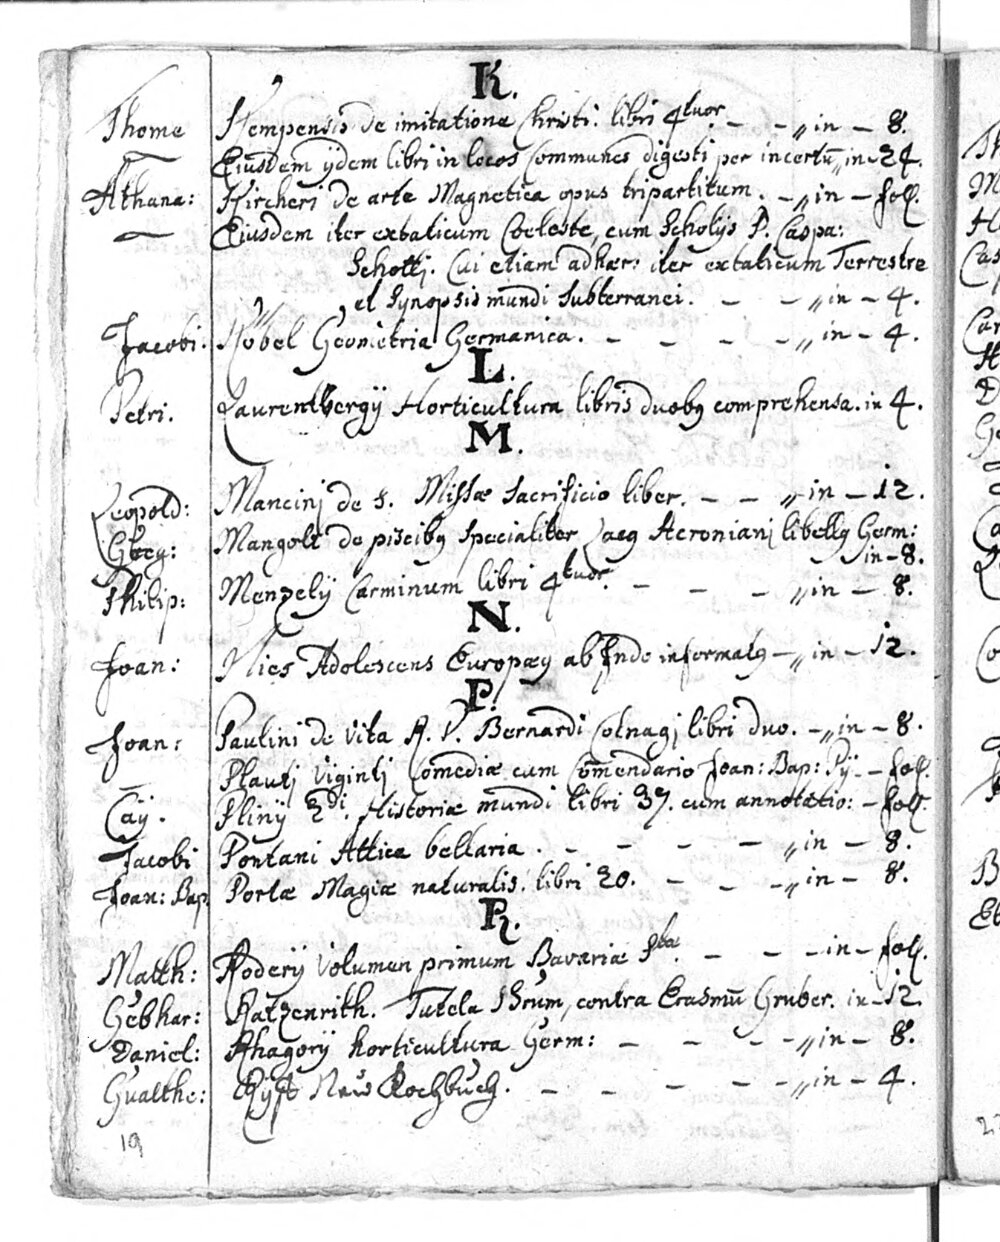 K.
Thome Kempensis de imitatione Christi. libri 4tuor. — — „ in — 8.
— Eiusdem ijdem libri in locos Communes digesti per incertũ „ in — 24.
Athana: Kircheri de arte Magnetica opus tripartitum. — „ in — fol.
— Eiusdem iter extaticum Coeleste, cum Scholijs P. Caspa:
Schotti. Cui etiam adhær: iter extaticum Terrestre
, et Synopsis mundi Subterranei. — — „ in — 4.
Jacobi. Köbel Geometria Germanica. — — — — „ in — 4.
L.
Petri. Laurenbergij Horticultura libris duobꝫ comprehensa. in 4.
M.
Leopold: Mancinj de S. Missæ Sacrificio liber. — — „ in — 12.
Greg: Mangolt de piscibꝫ specialiter Lacꝫ Acronianj libellꝫ Germ:
in — 8.
Philip: Menzelij Carminum libri 4tuor. — — — „ in — 8.
N.
Joan: Nies Adolescens Europæꝫ ab Indo informatꝫ — „ in — 12.
P.
Joan: Paulini de vita R. P. Bernardi Colnagj libri duo. — „ in — 8.
— Plautj viginti Comediæ cum Com̃endario Joan: Bap: Pij — fol.
Caij. Plinij 2di. Historiæ mundi libri 37. cum annotatio: — fol.
Jacobi Pontani Attica bellaria. — — — — — „ in — 8.
Joan: Bap Portæ Magiæ naturalis. libri 20. — — — „ in — 8.
R.
Matth: Raderij volumen primum Bavariæ Stæ. — — — in — fol.
Gebhar: Ratzenrith. Tutela Thrum, contra Erasmũ Gruber. in — 12.
Daniel: Rhagorij horticultura Germ: — — — — „ in — 8.
Gualthe: Rijff New Kochbuch. — — — — — „ in — 4.
19